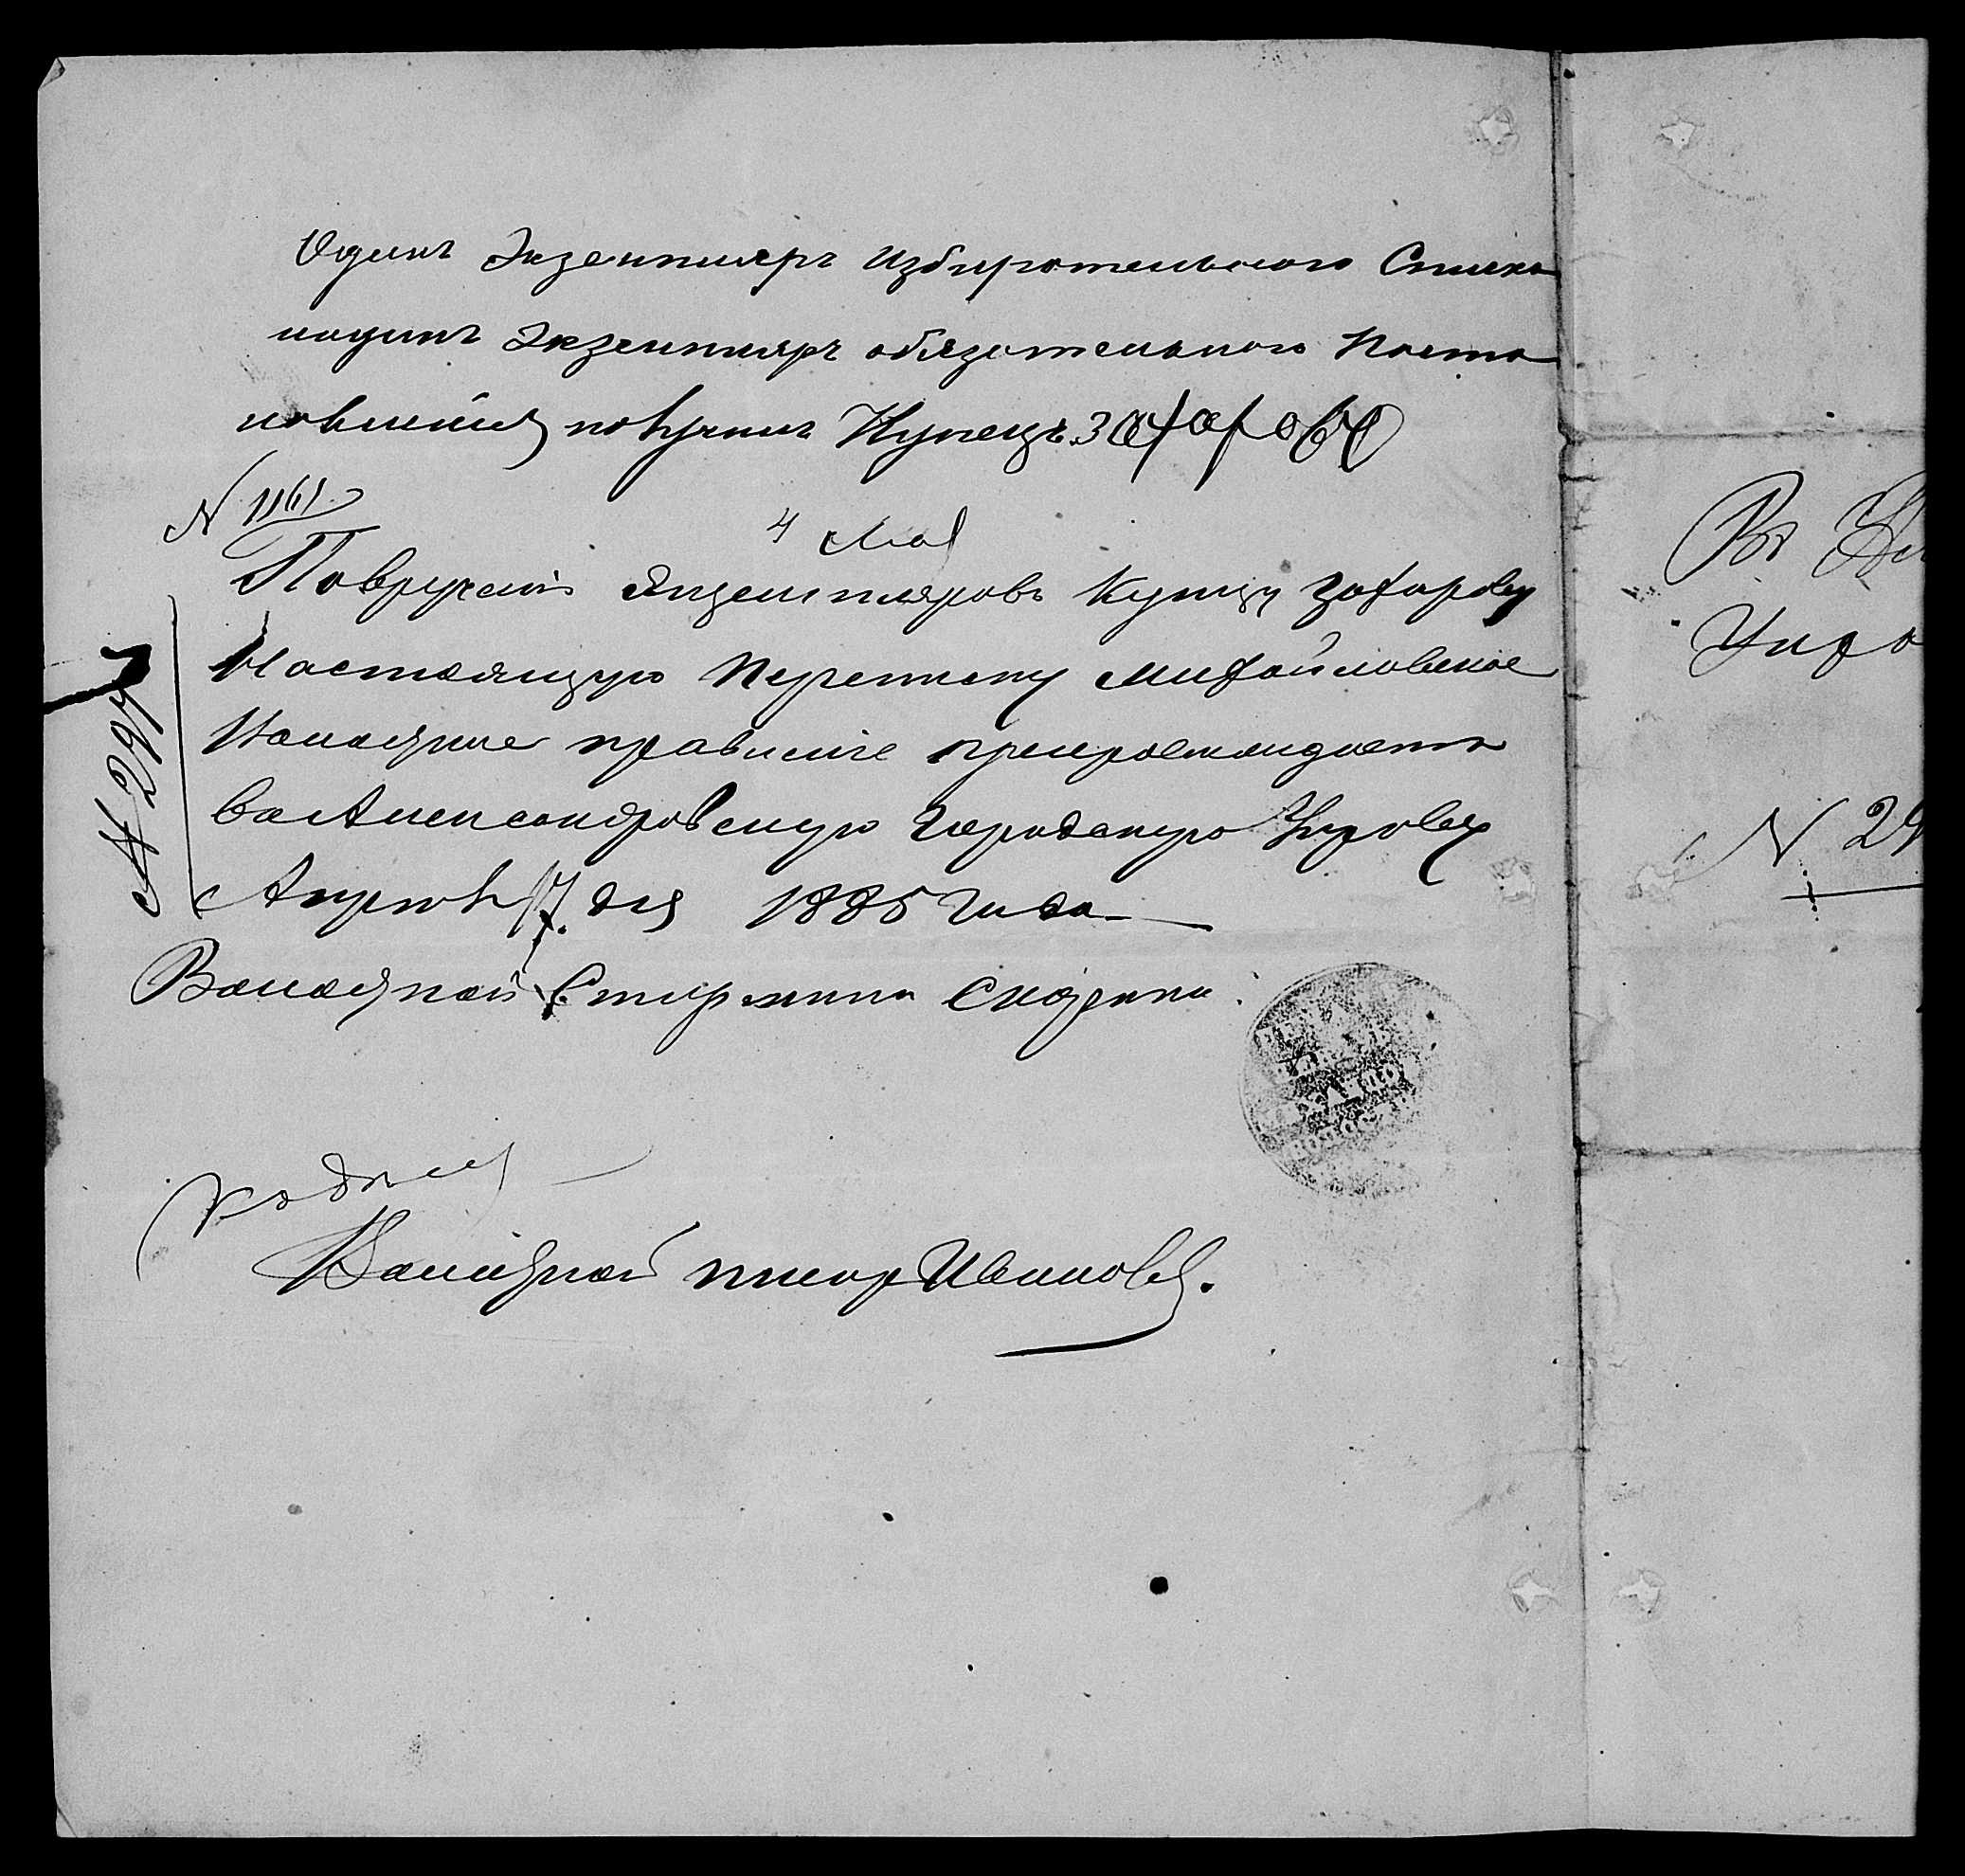 Одинъ Экземпляръ Избирательнаго Списка
иодинъ Экземпляръ обязательнаго Поста
новленія получилъ Купецъ Захаровъ
N 1161
4 Мая
Повручении Экземпляровъ Купцу Захарову
Настоящую Переписку Михайловское
Волосное правление препровождаетъ
ва Александровскую Городскую Управу
Апреля 17 дня 1885 Года
Волосной Старшина
Волосной писарь Ивановъ.
N 297
Въ
Упра
N 29